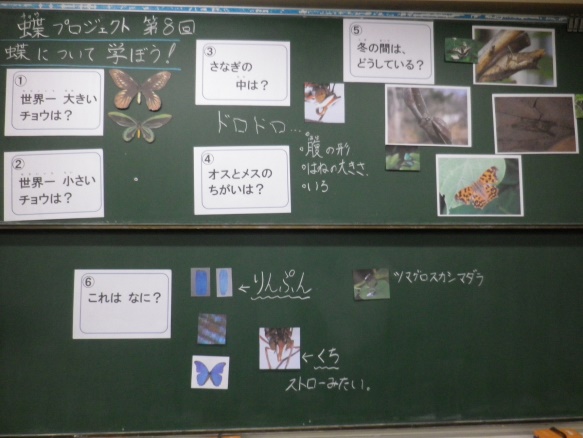 蝶プロジェクト 第8回
蝶について学ぼう!
①
世界一 大きい
チョウは?
②
世界一 小さい
チョウは?
③
さなぎの
中は?
ドロドロ…
④
オスとメスの
ちがいは?
・腹の形
・はねの大きさ
・いろ
⑤
冬の間は、
どうしている?
⑥
これは なに?
←りんぷん
←くち
ストローみたい。
ツマグロスカシマダラ